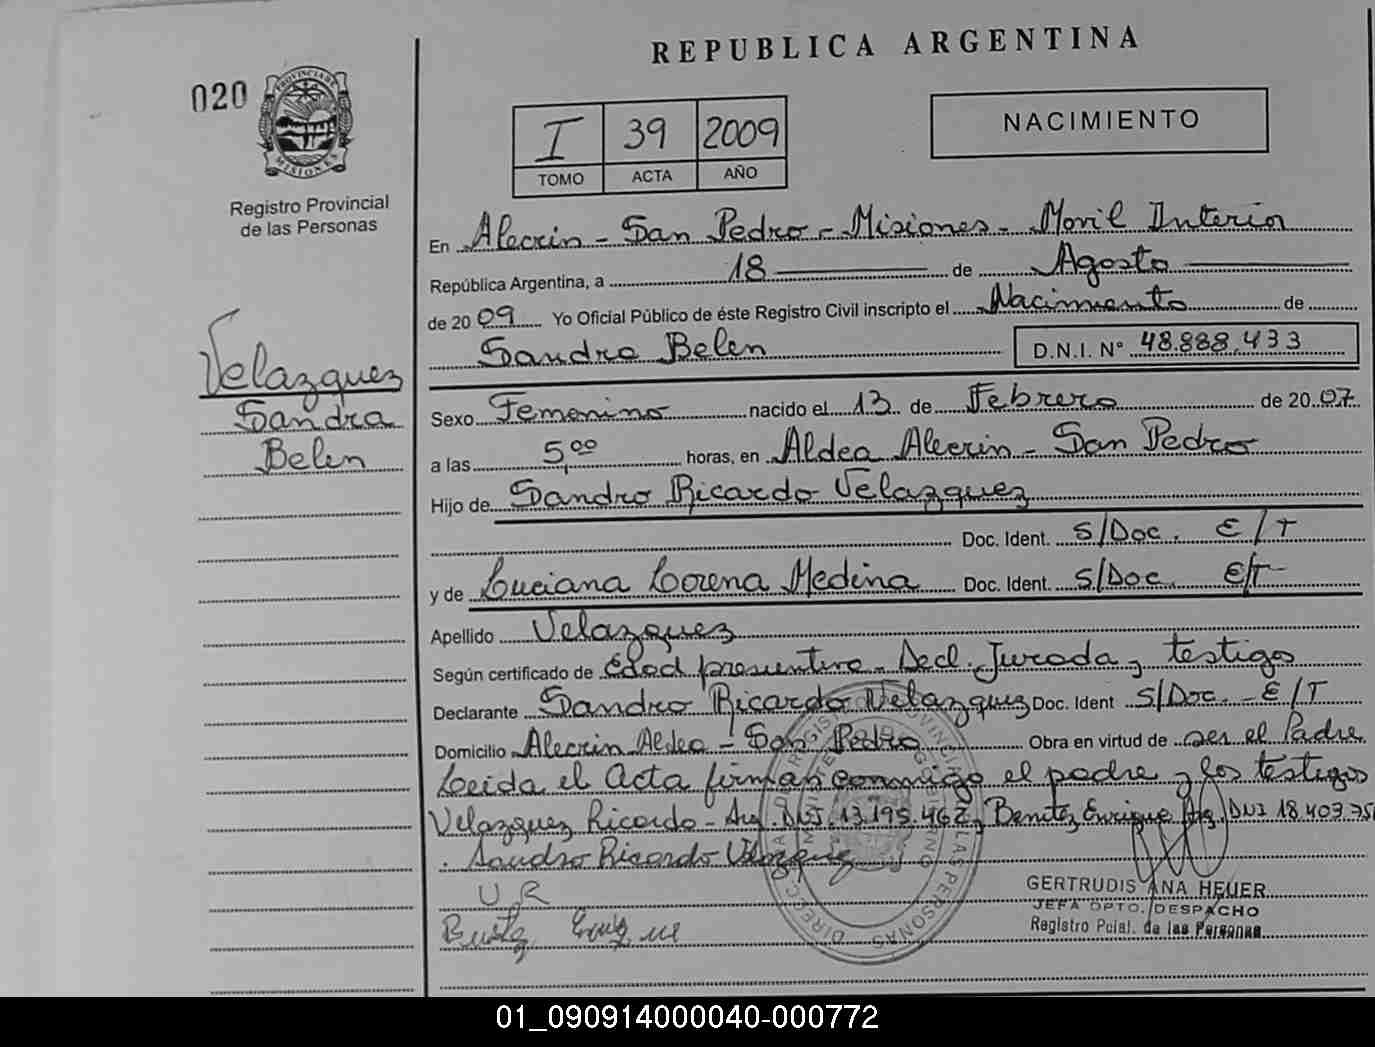 REPUBLICA ARGENTINA
020
PROVINCIA DE MISIONES
Registro Provincial
de las Personas
I 39 2009
TOMO ACTA AÑO
NACIMIENTO
Velazquez
Sandra
Belen
En Alecrin - San Pedro - Misiones - Movil Interior
República Argentina, a 18 de Agosto
de 2009 Yo Oficial Público de éste Registro Civil inscripto el Nacimiento de
Sandra Belen D.N.I. N° 48.888.433
Sexo Femenino nacido el 13 de Febrero de 2007
a las 5,00 horas, en Aldea Alecrin - San Pedro
Hijo de Sandro Ricardo Velazquez
Doc. Ident. S/Doc. E/T
y de Luciana Lorena Medina Doc. Ident. S/Doc. E/T
Apellido Velazquez
Según certificado de Edad presuntiva - Decl. Jurada y testigos
Declarante Sandro Ricardo Velazquez Doc. Ident S/Doc. - E/T
Domicilio Alecrin Aldea - San Pedro Obra en virtud de ser el Padre
Leida el Acta firman conmigo el padre y los testigos
Velazquez Ricardo - Arg. DNI 13.195.462 y Benitez Enrique Arg. DNI 18.403.75
Sandro Ricardo Velazquez
U R
GERTRUDIS ANA HEUER
JEFA DPTO. DESPACHO
Registro Pcial. de las Personas
01_090914000040-000772